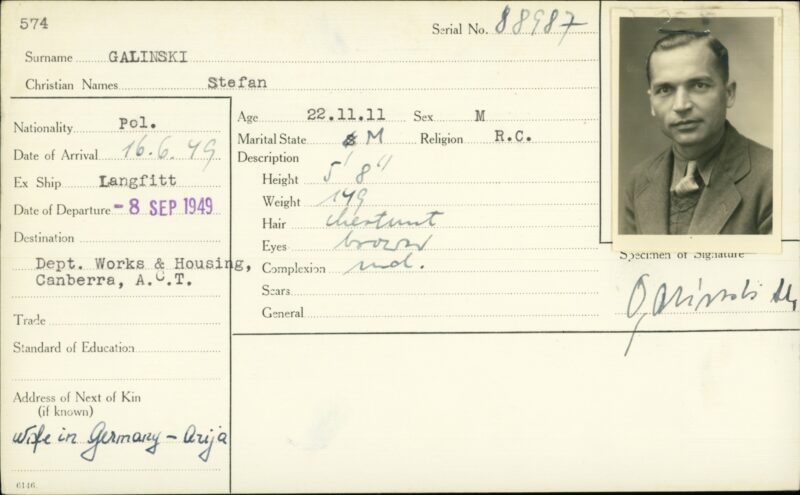 574
Serial No. 88987
Surname GALINSKI
Christian Names Stefan
Nationality Pol.
Date of Arrival 16.6.49
Ex Ship Langfitt
Date of Departure - 8 SEP 1949
Destination
Dept. Works & Housing,
Canberra, A.C.T.
Trade
Standard of Education
Address of Next of Kin
(if known)
wife in Germany - Arija
6146.
Age 22.11.11 Sex M
Marital State M Religion R.C.
Description
Height 5' 8"
Weight 149
Hair chestnut
Eyes brown
Complexion md.
Scars
General
Specimen of Signature
Galinski St.